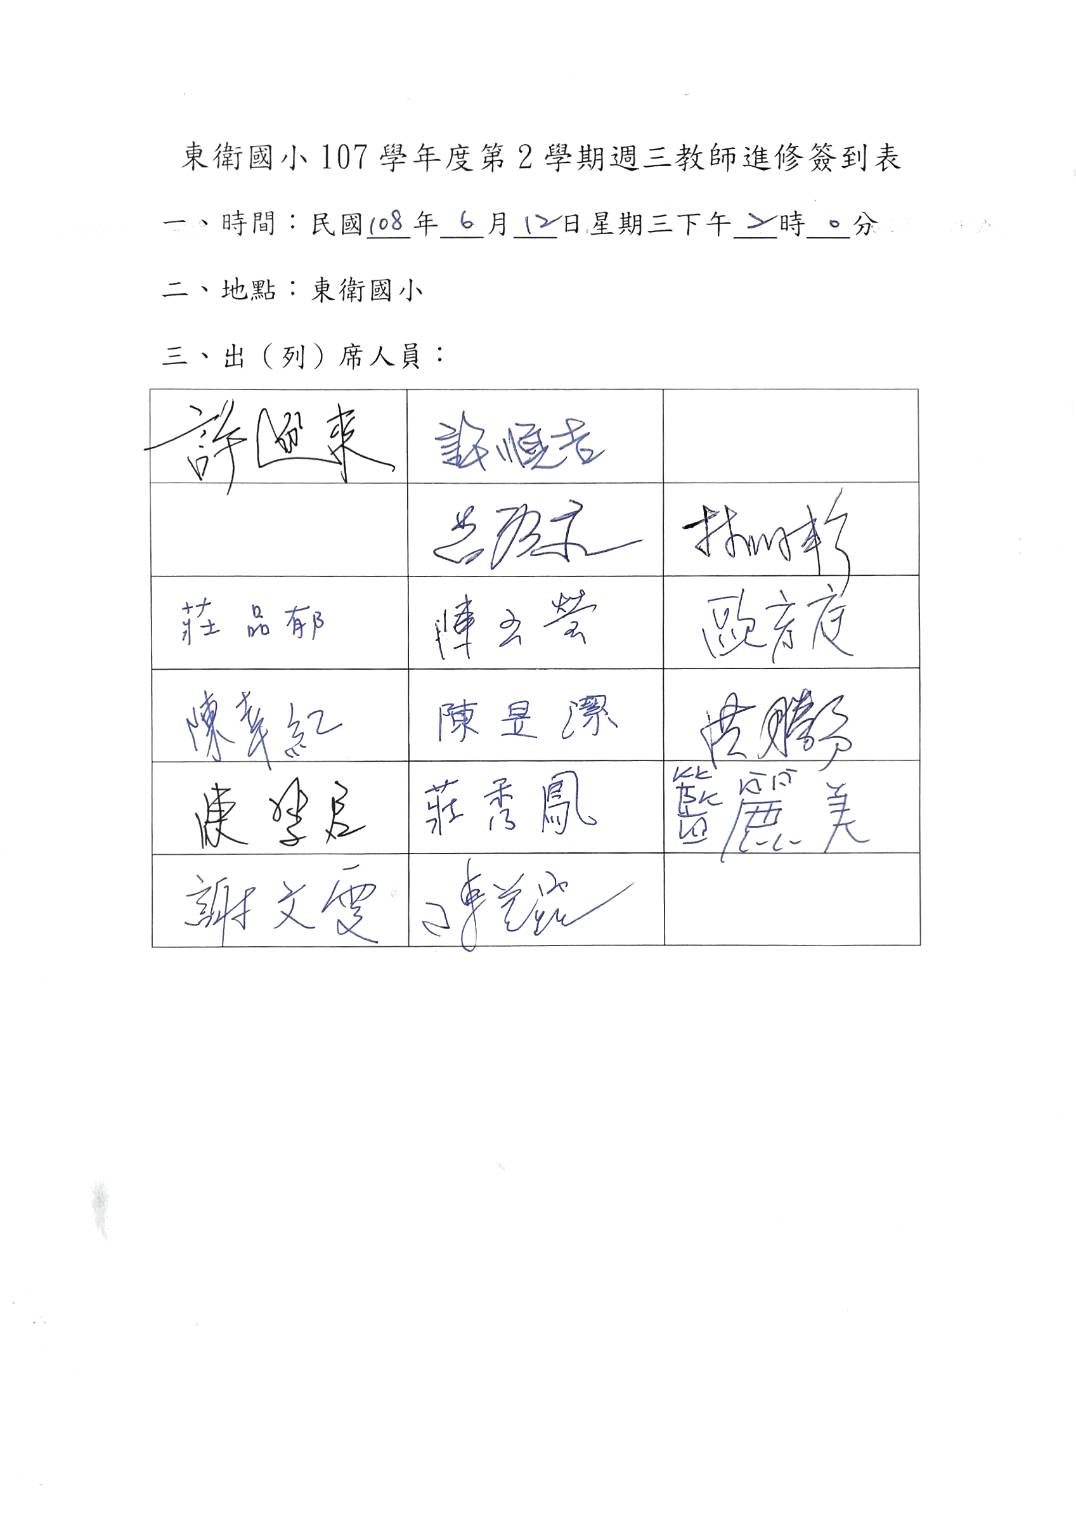 東衛國小 107 學年度第 2 學期週三教師進修簽到表
一、時間：民國108年 6 月 12日星期三下午 2 時 0 分
二、地點：東衛國小
三、出（列）席人員：
許 來 許順吉
林
莊品郁 陳玉瑩 歐彥庭
陳幸紅 陳昱潔 洪騰
陳 君 莊秀鳳 籃麗美
謝文雯 陳